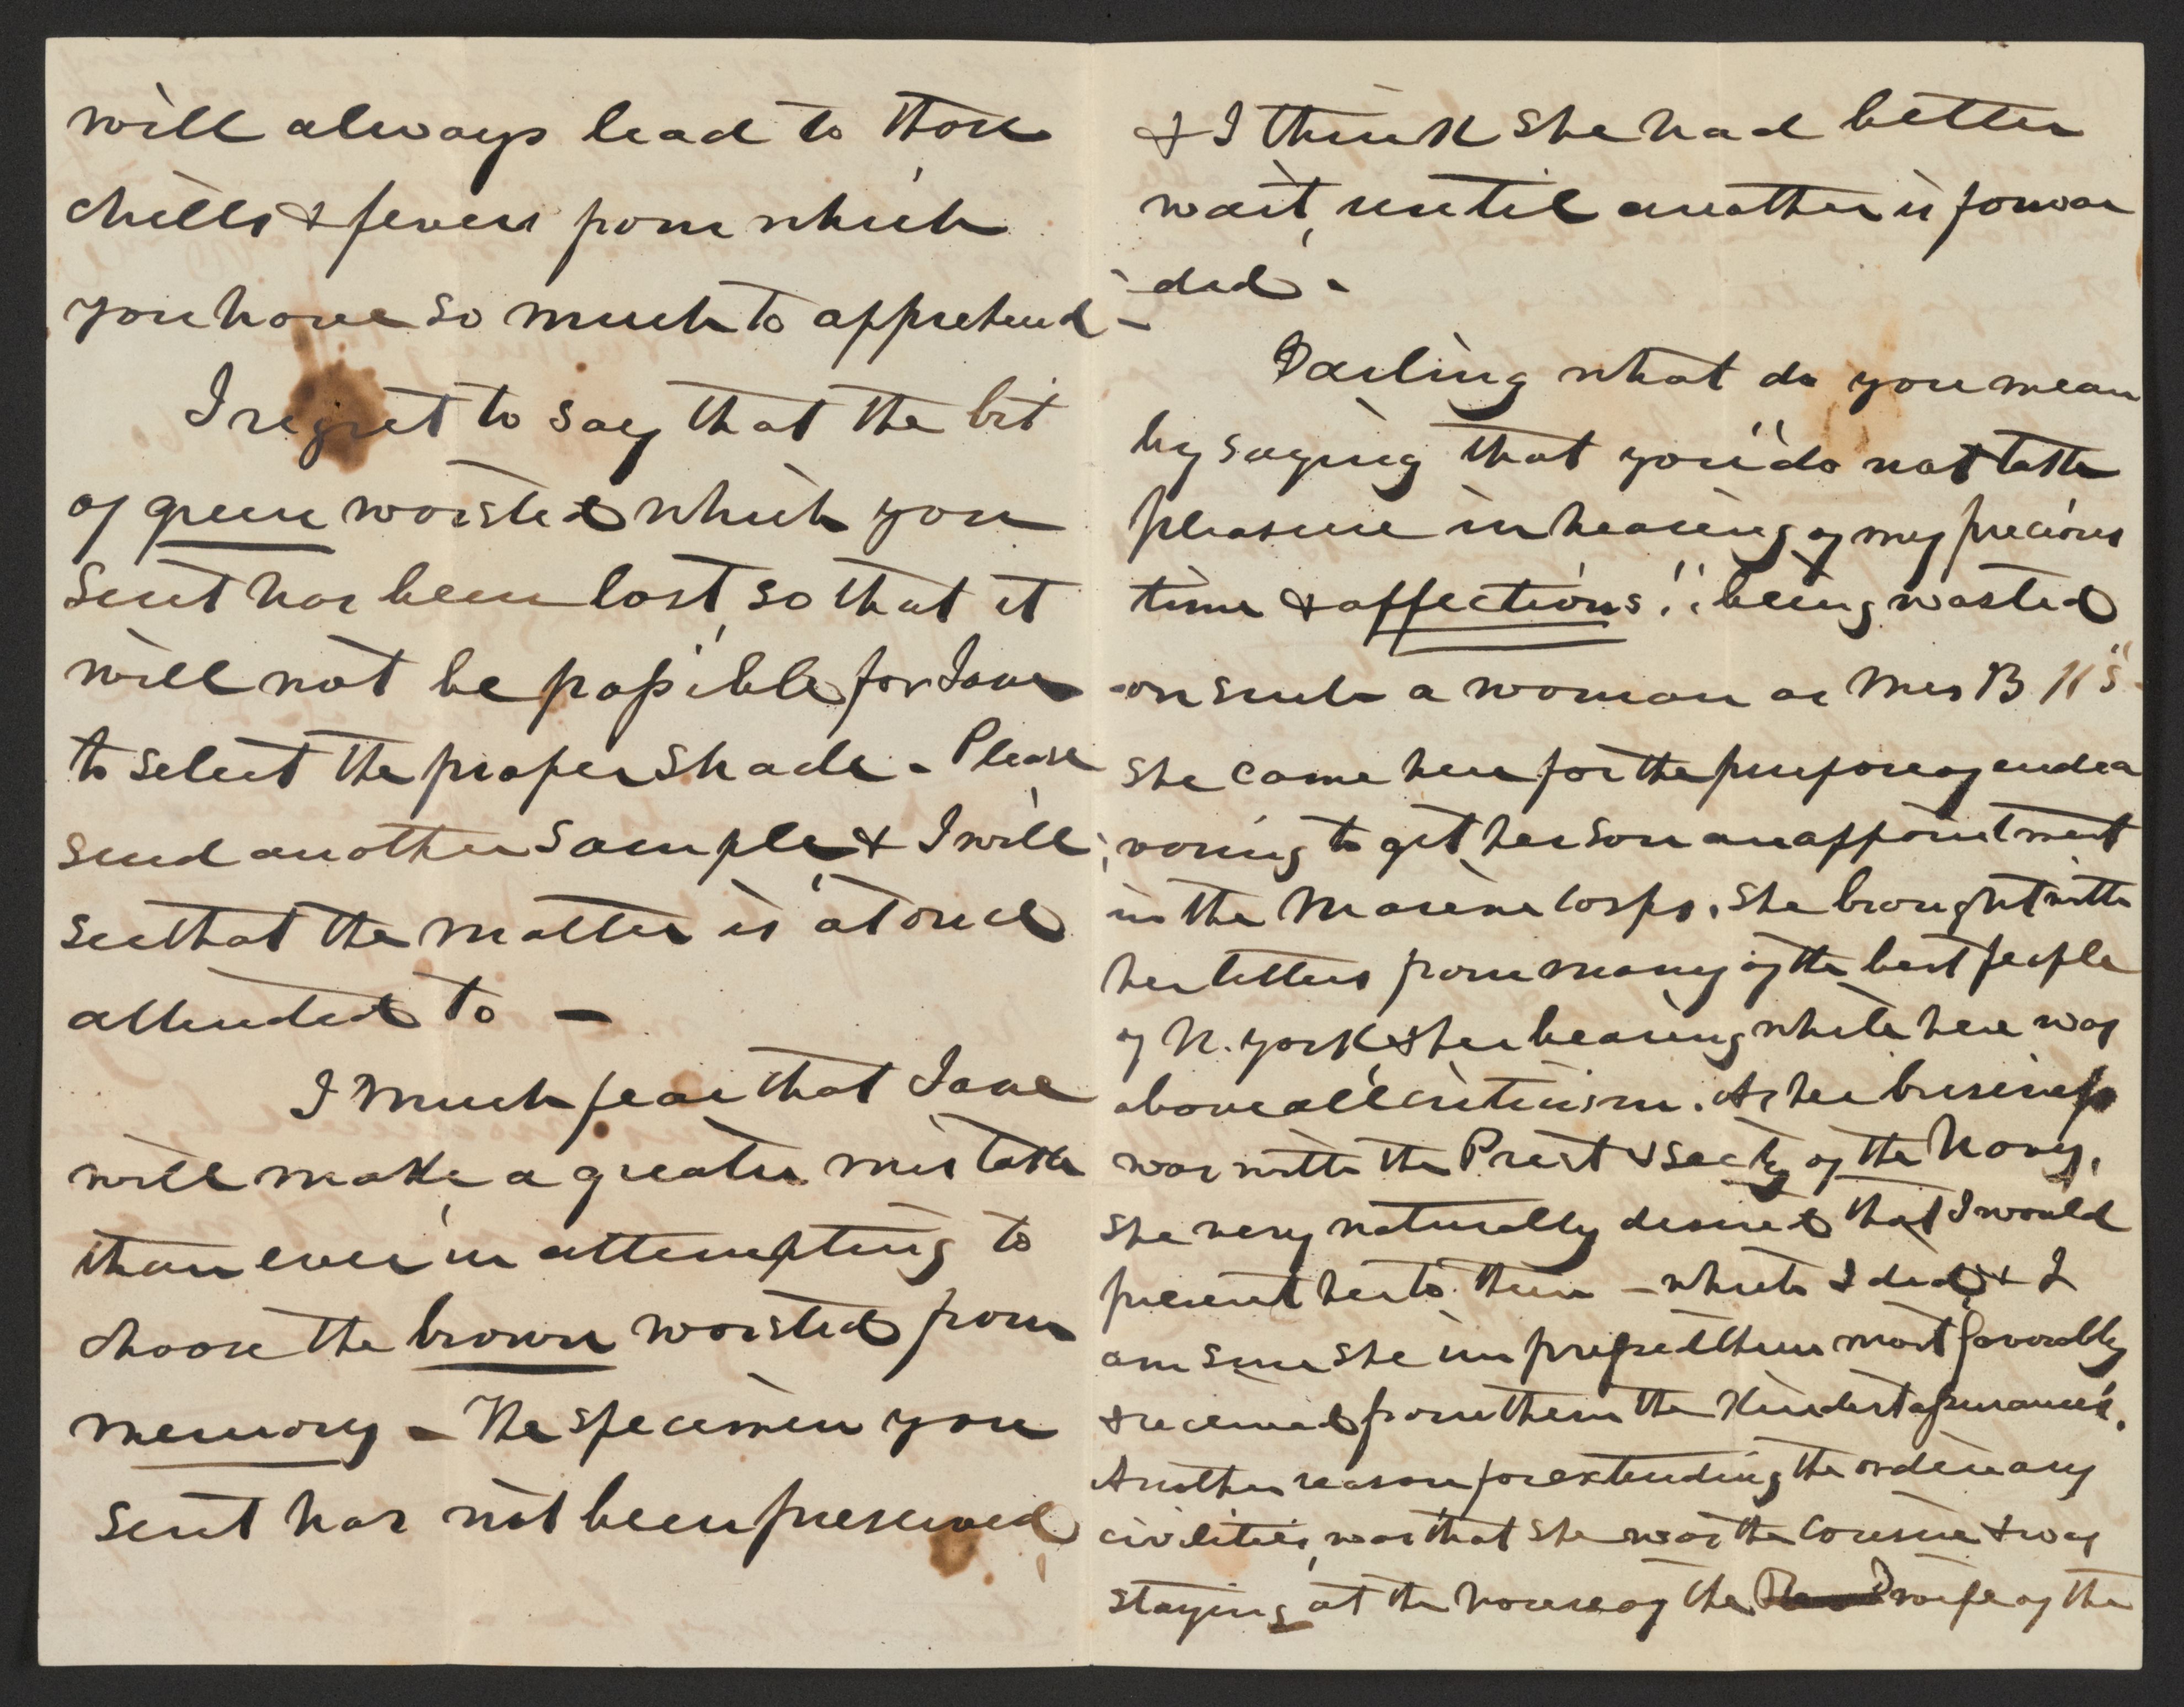 will always lead to those
chills & fevers from which
you have so much to apprehend –
I regret to say that the bit
of green worsted which you
sent has been lost, so that it
will not be possible for Jane
to select the proper shade – Please
send another sample, & I will
see that the matter is at once
attended to –
I much fear that Jane
will make a greater mistake
than ever in attempting to
choose the brown worsted from
memory – The specimen you
sent has not been preserved,
& I think she had better
wait, until another is forwar
-ded –
Darling what do you mean
by saying that you "do not take
pleasure in hearing of my precious
time & affections" "being wasted
on such a woman as Mrs B K"s
She came here for the purpose of endea
voring to get her son an appointment
in the Marine Corps. She brought with
her letters from many of the best people
of N. York & her bearing while here was
above all criticism. As her business
was with the Prest & Secty of the Navy,
she very naturally desired that I would
present her to them – which I did, & I
am sure she impressed them most favorably
& received from them the kindest assurances.
Another reason for extending the ordinary
civilities, was that she was the cousin & was
staying at the house of the wife of the